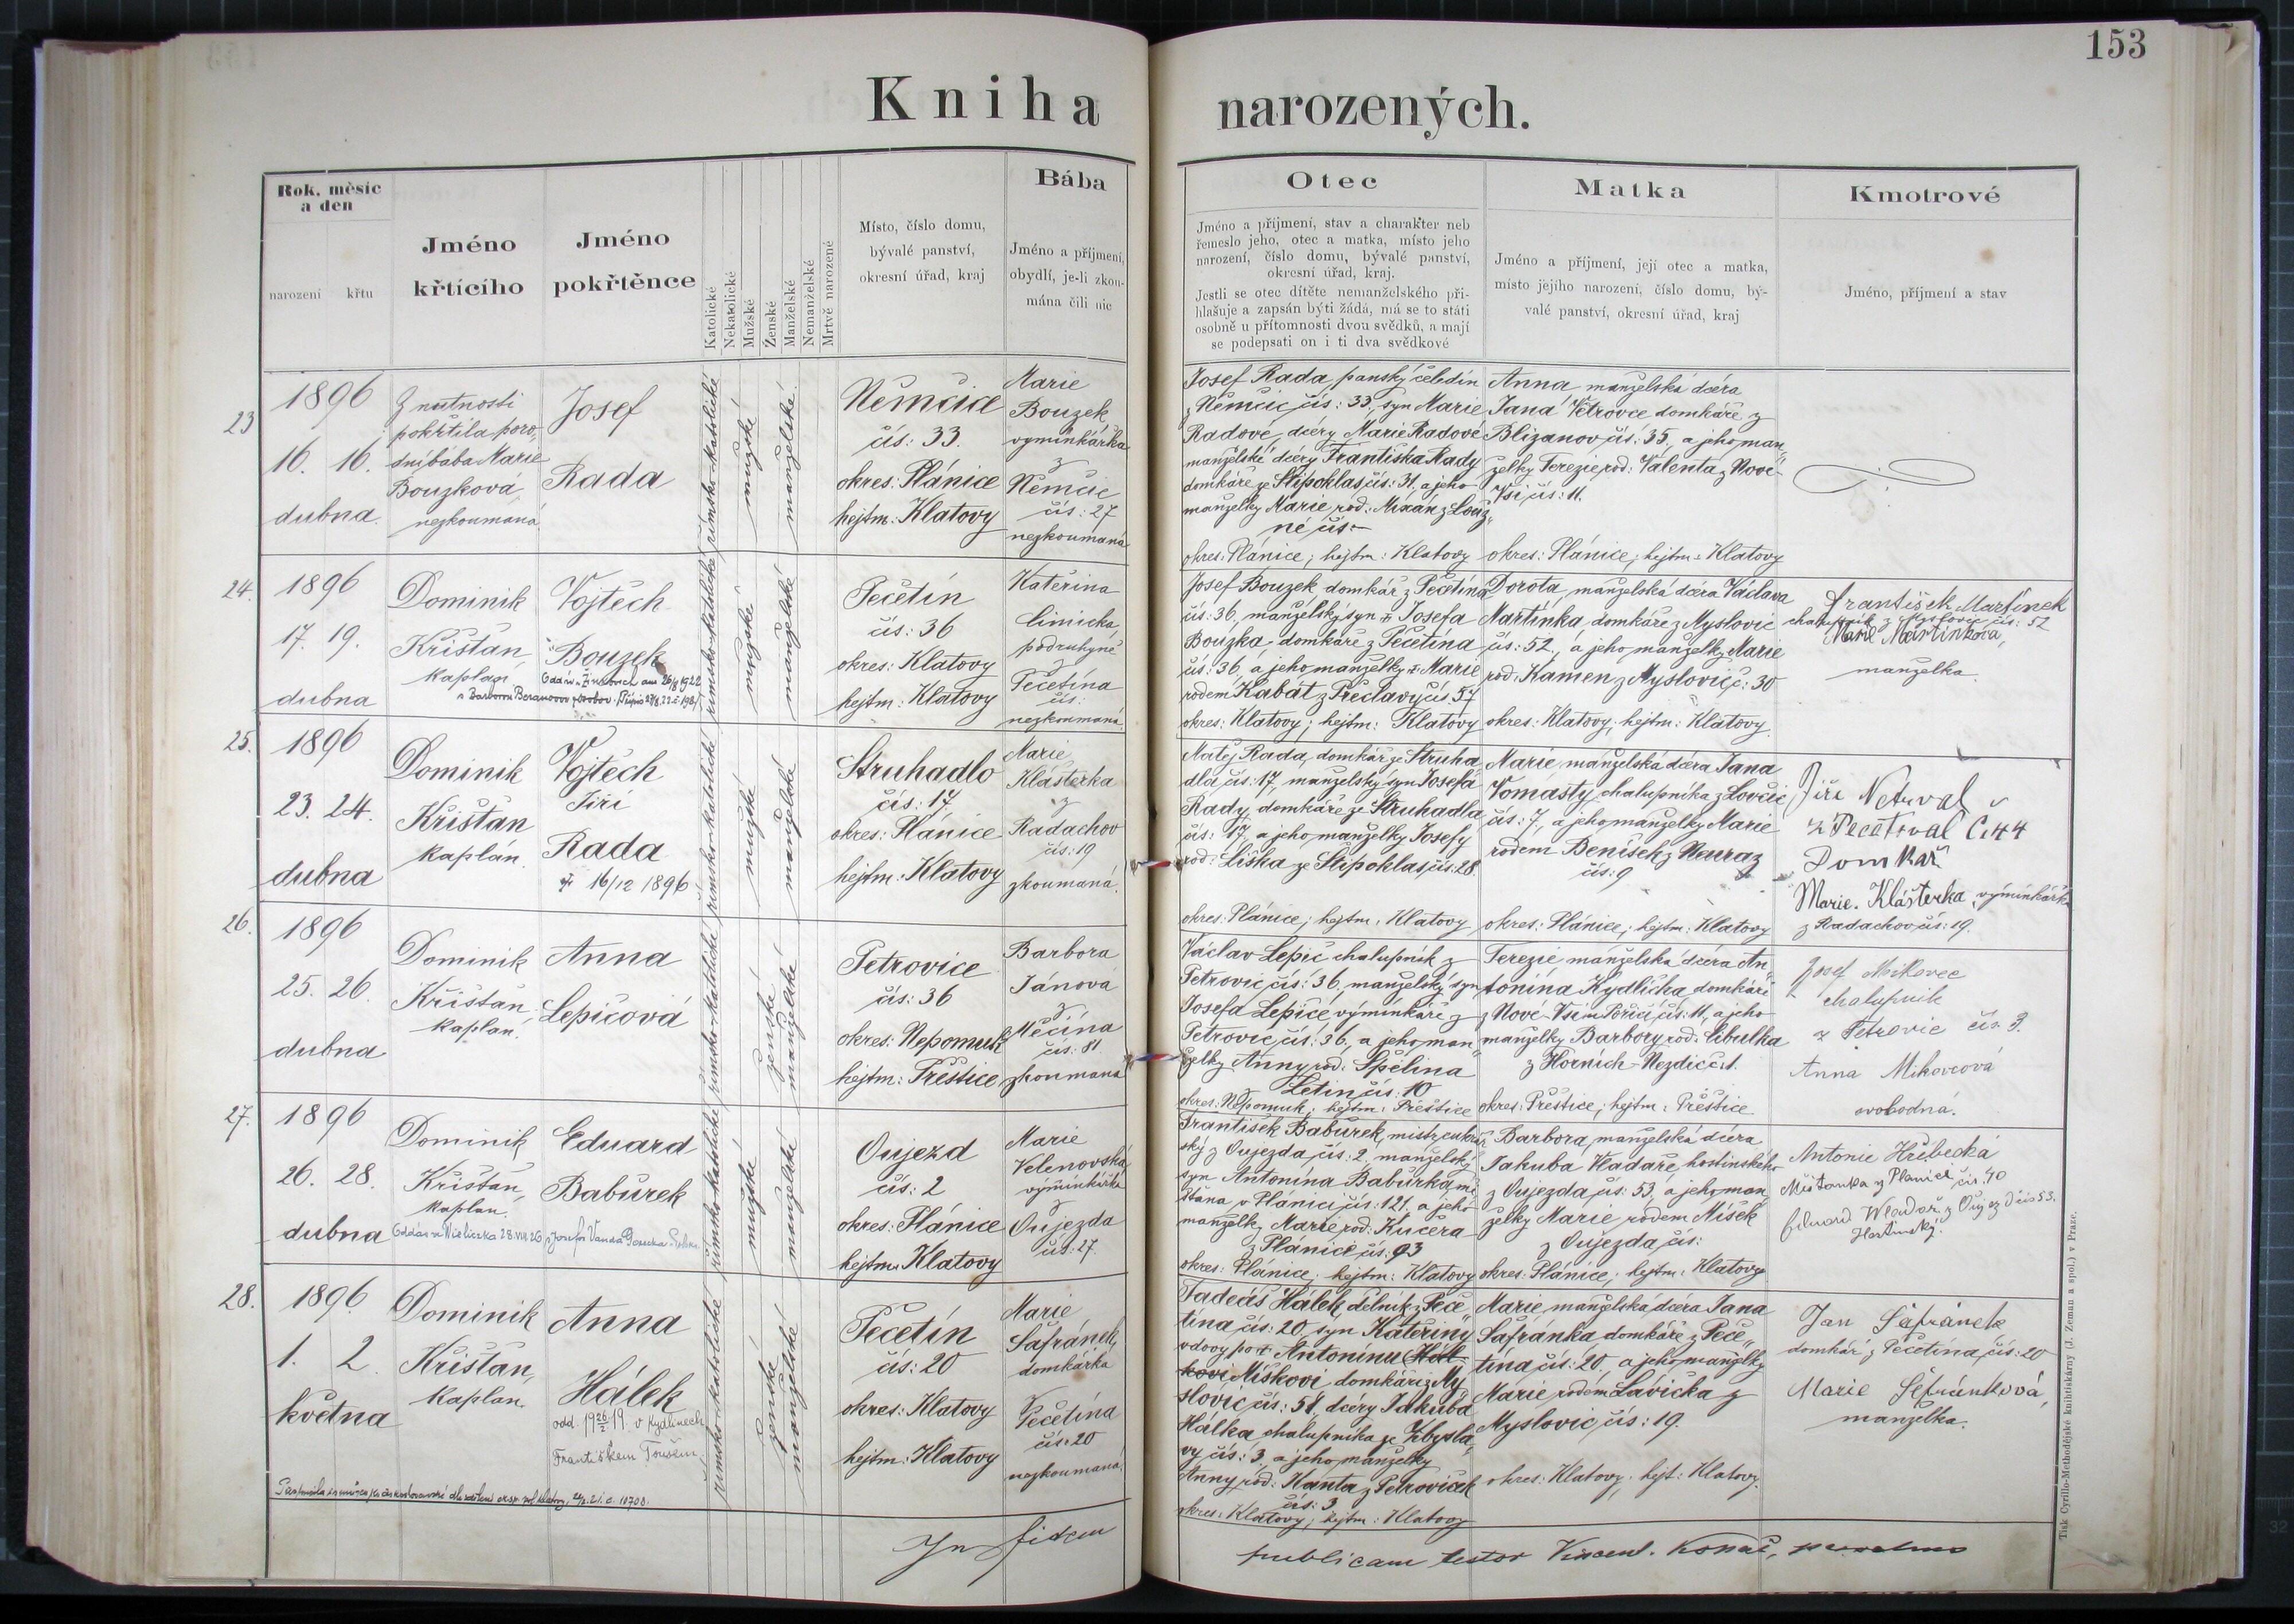 153
Kniha narozených.
Rok, měsíc
a den
narození křtu
Jméno
křtícího
Jméno
pokřtěnce
Katolické
Nekatolické
Mužské
Ženské
Manželské
Nemanželské
Mrtvě narozené
Místo, číslo domu,
bývalé panství,
okresní úřad, kraj
Bába
Jméno a příjmení,
obydlí, je-li zkou-
mána čili nic
Otec
Jméno a příjmení, stav a charakter neb
řemeslo jeho, otec a matka, místo jeho
narození, číslo domu, bývalé panství,
okresní úřad, kraj.
Jestli se otec dítěte nemanželského při-
hlašuje a zapsán býti žádá, má se to státi
osobně u přítomnosti dvou svědků, a mají
se podepsati on i ti dva svědkové
Matka
Jméno a příjmení, její otec a matka,
místo jejího narození, číslo domu, bý-
valé panství, okresní úřad, kraj
Kmotrové
Jméno, příjmení a stav
23
1896
16. 16.
dubna.
Z nutnosti
pokřtila poro„
dní bába Marie
Bouzkova
nezkoumaná
Josef
Rada
římsko-katolické
mužské
manželské
Němčice
čís: 33.
okres: Plánice
hejtm: Klatovy
Marie
Bouzek
výminkářka
z
Němčic
čís: 27
nezkoumaná
Josef Rada, panský čeledín
z Němčic čís: 33, syn Marie
Radové, dcery Marie Radové
manželské dcery Františka Rady
domkáře ze Štipoklas čís: 31, a jeho
manželky Marie rod: Mixán z Louz„
né čís-
okres: Plánice; hejtm: Klatovy
Anna manželská dcera
Jana Větrovce domkáře z
Blizanov čís: 35, a jeho man„
želky Terezie rod: Valenta z Nové
Vsi čís: 11.
okres: Plánice; hejtm: Klatovy
24.
1896
17. 19.
dubna
Dominik
Křištan,
kaplan
Vojtěch
Bouzek
římsko-katolické
mužské
manželské
Pečetín
čís: 36
okres: Klatovy
hejtm: Klatovy
Kateřina
Cimická
podruhyně
z
Pečetína
čís:
nezkoumaná.
Josef Bouzek domkář z Pečetína
čís: 36, manželský syn Josefa
Bouzka, domkáře z Pečetína
čís: 36, a jeho manželky Marie
rodem Kabát z Předslavy čís 57
okres: Klatovy; hejtm: Klatovy
Dorota, manželská dcera Václava
Martínka, domkáře z Myslovic
čís: 52., a jeho manželky Marie
rod: Kamen z Myslovic č: 30
okres: Klatovy, hejtm: Klatovy.
František Martínek
chalupník z Myslovic čís: 52
Marie Martínková,
manželka.
25.
1896
23. 24.
dubna
Dominik
Křištan
kaplán.
Vojtěch
Jiří
Rada
† 16/12 1896
římsko-katolické
mužské
manželské
Struhadlo
čís: 17,
okres: Plánice
hejtm: Klatovy
Marie
Klásterka
z
Radachov
čís: 19
zkoumaná.
Matěj Rada, domkář ze Struha
dla čís: 17, manželský syn Josefa
Rady, domkáře ze Struhadla
čís: 17, a jeho manželky Josefy
rod: Liška ze Štipoklas čís: 28
okres: Plánice; hejtm: Klatovy
Marie manželská dcera Jana
Vomásty, chalupníka z Lovčic
čís: 7, a jeho manželky Marie
rodem Benísek z Neuraz
čís: 9
okres: Plánice; hejtm: Klatovy
Jiří Netrval
Domkař
Marie. Klásterka, výminkářka
z Radachov čís: 19.
26.
1896
25. 26.
dubna
Dominik
Křištan,
kaplan.
Anna
Lepičová
římsko-katolické
ženské
manželské
Petrovice
čís: 36
okres: Nepomuk
hejtm: Přeštice
Barbora
Jánová
z
Měčína
čís: 81
zkoumaná
Václav Lepič chalupník z
Petrovic čís: 36, manželský syn
Josefa Lepiče, výminkáře z
Petrovic čís: 36., a jeho man„
želky Anny rod: Špelina
Letin čís: 10
okres: Nepomuk; hejtm: Přeštice
Terezie manželská dcera An„
tonína Kydlička, domkáře
z Nové-Vsi u Poříčí čís: 11, a jeho
manželky Barbory rod: Cibulka
z Horních-Nezdic č: 1.
okres: Přeštice; hejtm: Přeštice
Josef Mikovec
chalupník
z Petrovic čís. 3.
Anna Mikovcová
svobodná.
27.
1896
26. 28.
dubna
Dominik
Křištan,
kaplan.
Eduard
Babůrek
římsko-katolické
mužské
manželské
Oujezd
čís: 2
okres: Plánice
hejtm: Klatovy
Marie
Velenovská,
výminkářka
z
Oujezda
čís: 27.
František Babůrek, mistr cukrář„
ský z Oujezda, čís: 2. manželský
syn Antonína Babůrka mě
šťana v Plánici čís: 121. a jeho
manželky Marie rod: Kučera
z Plánice čís: 93
okres: Plánice; hejtm: Klatovy
Barbora, manželská dcera
Jakuba Vladaře, hostinského
z Oujezda čís: 53, a jeho man„
želky Marie rodem Míšek
z Oujezda čís:
okres: Plánice; hejtm: Klatovy
Antonie Hřebecká
Měšťanka z Planice čís. 40
Eduard Wladař z Oujezd čís 53.
Hostinský.
28.
1896
1. 2
května
Dominik
Křištan,
kaplan.
Anna
Hálek
odd. 19 26/I 19. v Kydlinech
Františkem Toušem.
římsko-katolické
ženské
manželské
Pečetín
čís: 20
okres: Klatovy
hejtm: Klatovy
Marie
Šafránek,
domkářka
z
Pečetína
čís: 20
nezkoumaná.
Tadeáš Hálek, dělník z Peče„
tína čís: 20, syn Kateřiny
vdovy po † Antonínu
Míškovi domkáři z My
slovic čís: 51, dcery Jakuba
Hálka chalupníka ze Zbysla„
vy čís: 3, a jeho manželky
Anny rod: Kanta z Petroviček
čís: 3
okres: Klatovy; hejtm: Klatovy
Marie, manželská dcera Jana
Šafránka domkáře z Peče„
tína čís: 20, a jeho manželky
Marie rodem Lavička z
Myslovic čís: 19.
okres: Klatovy; hejt: Klatovy.
Jan Šafránek
domkář z Pečetína čís: 20
Marie Šefránková,
manželka.
In fidem publicam testor Vincent.
Tisk Cyrillo-Methodějské knihtiskárny (J. Zeman a spol.) v Praze.
32